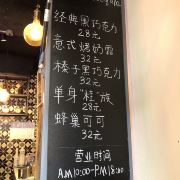 经典黑巧克力
28元
意式烤奶霜
32元
榛子黑巧克力
32元
单身"桂"族
28元
蜂巢可可
32元
营业时间
AM10:00-PM18:00